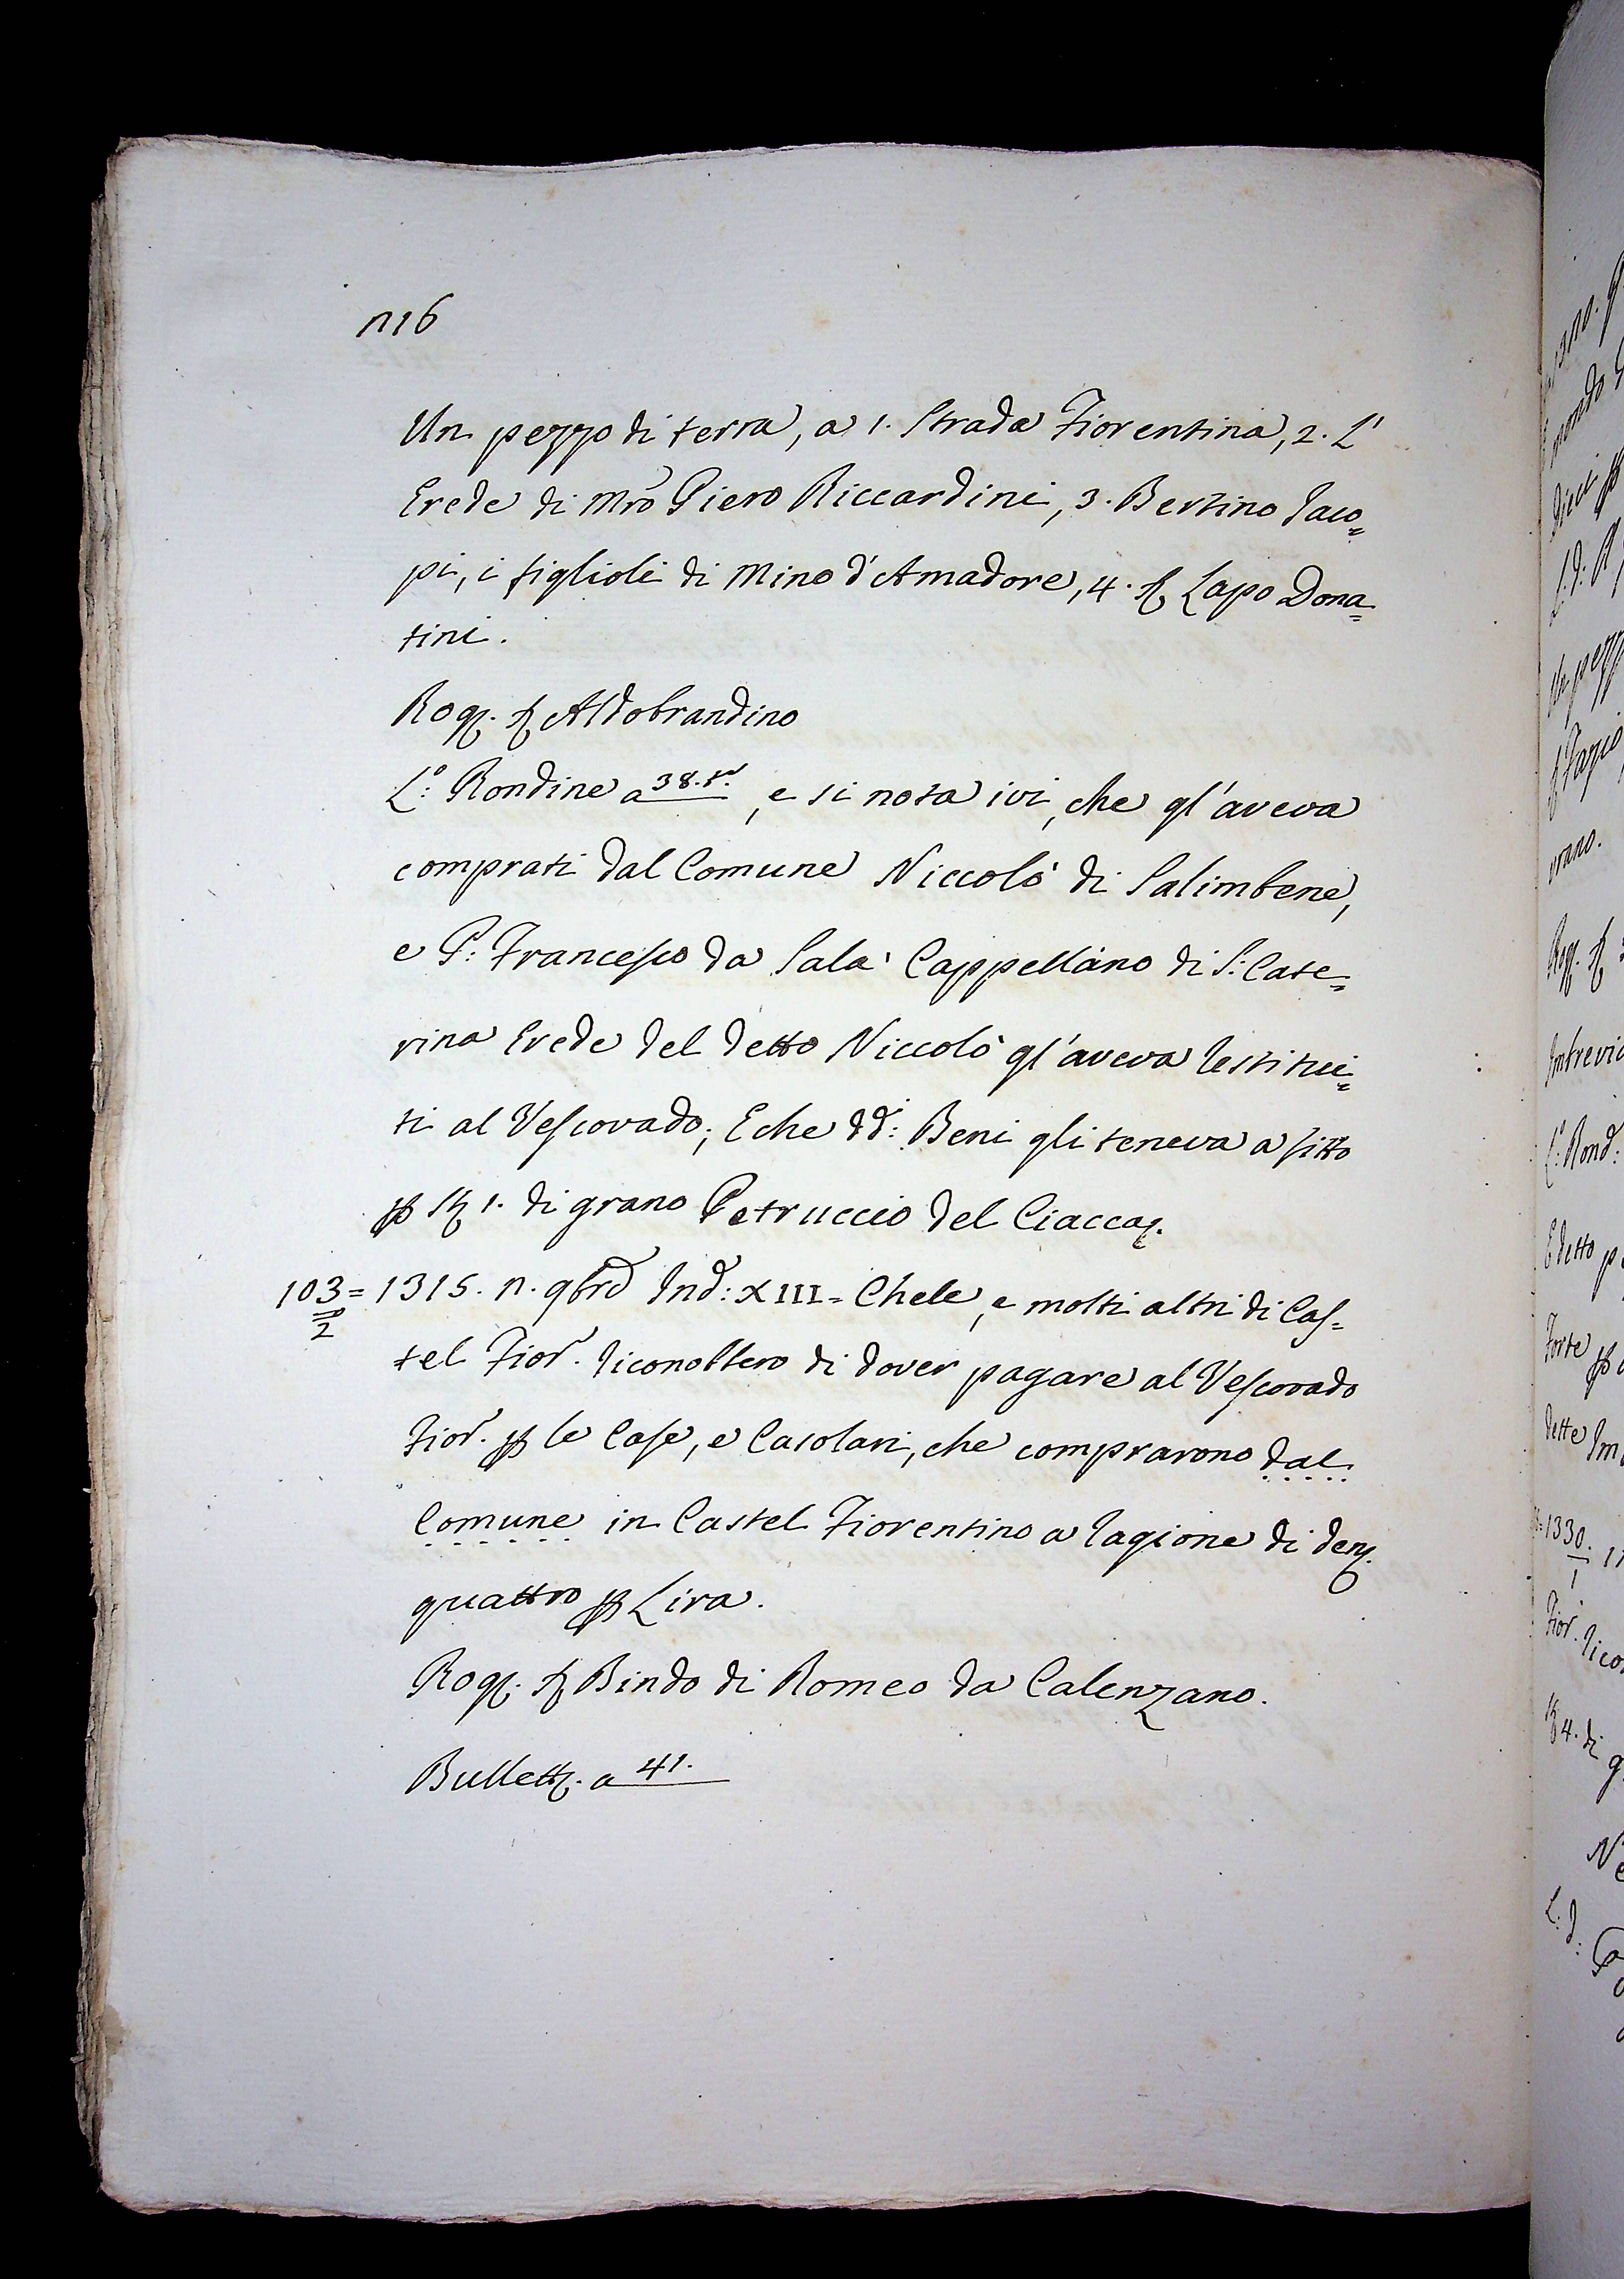 1116
Un pezzo di terra, a 1. Strada Fiorentina, 2. L'
Erede di Mro Piero Riccardini, 3. Bertino Jaco=
pi, i figlioli di Mino d'Amadore, 4. Sr Lapo Dona=
tini.
Rog. Sr Aldobrandino
L.o Rondine a 38. , e si nota ivi, che gl'aveva
comprati dal Comune Niccolò di Salimbene,
e P: Francesco da Sala Cappellano di S: Cate=
rina Erede del detto Niccolò gl'aveva restitui=
ti al Vescovado; E che dd: Beni gli teneva a fitto
p 1. di grano Petruccio del Ciacca.
103= 1315. 11. 9bre Ind: XIII= Chele, e molti altri di Cas=
2
tel Fior. riconobbero di dover pagare al Vescovado
Fior. p le Case, e Casolari, che comprarono dal
Comune in Castel Fiorentino a ragione di den.
quattro p Lira.
Rog. Sr Bindo di Romeo da Calenzano.
Bullett. a 41.